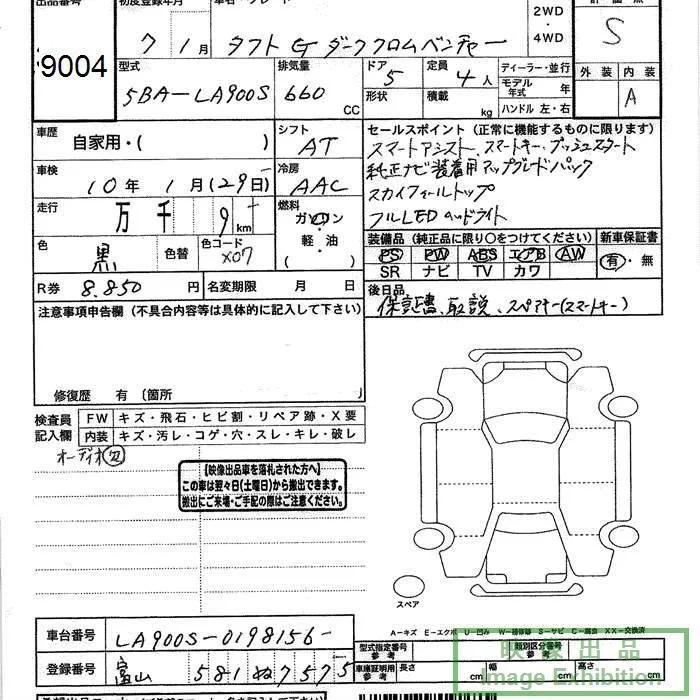 出品番号
9004
初度登録年月
7 年 1 月
車名・グレード
タフト G ダーククロムベンチャー
2WD
・
4WD
評価点
S
外装 内装
A
型式
5BA-LA900S
排気量
660 CC
ドア
5
定員
4 人
形状
積載 kg
ディーラー・並行
モデル年式 年
ハンドル 左・右
車歴
自家用・( )
シフト
AT
車検
10 年 1 月 (29日)
冷房
AAC
走行
万 千 9 km
燃料
ガソリン
軽・油
( )
色
黒
色替
色コード
X07
R券
8.850 円
名変期限 月 日
セールスポイント (正常に機能するものに限ります)
スマートアシスト、スマートキー・プッシュスタート
純正ナビ装着用アップグレードパック
スカイフィールトップ
フルLEDヘッドライト
装備品 (純正品に限り○をつけてください)
新車保証書
PS PW ABS エアB AW
SR ナビ TV カワ
有・無
後日品
保証書、取説、スペアキー(スマートキー)
注意事項申告欄 (不具合内容等は具体的に記入して下さい)
修復歴 有 〔箇所
検査員記入欄
FW キズ・飛石・ヒビ割・リペア跡・X要
内装 キズ・汚レ・コゲ・穴・スレ・キレ・破レ
オーディオ欠
【映像出品車を落札された方へ】
この車は翌々日(土曜日)から搬出できます。
搬出にご来場・ご手配の際はご注意ください。
スペア
A－キズ E－エクボ U－凹み W－補修跡 S－サビ C－腐食 XX－交換済
車台番号
LA900S-0198156-
登録番号
富山 581 ぬ 7575
型式指定番号 参考
類別区分番号 参考
車庫証明用 参考
長さ cm
幅 cm
高さ cm
映像出品
Image Exhibition